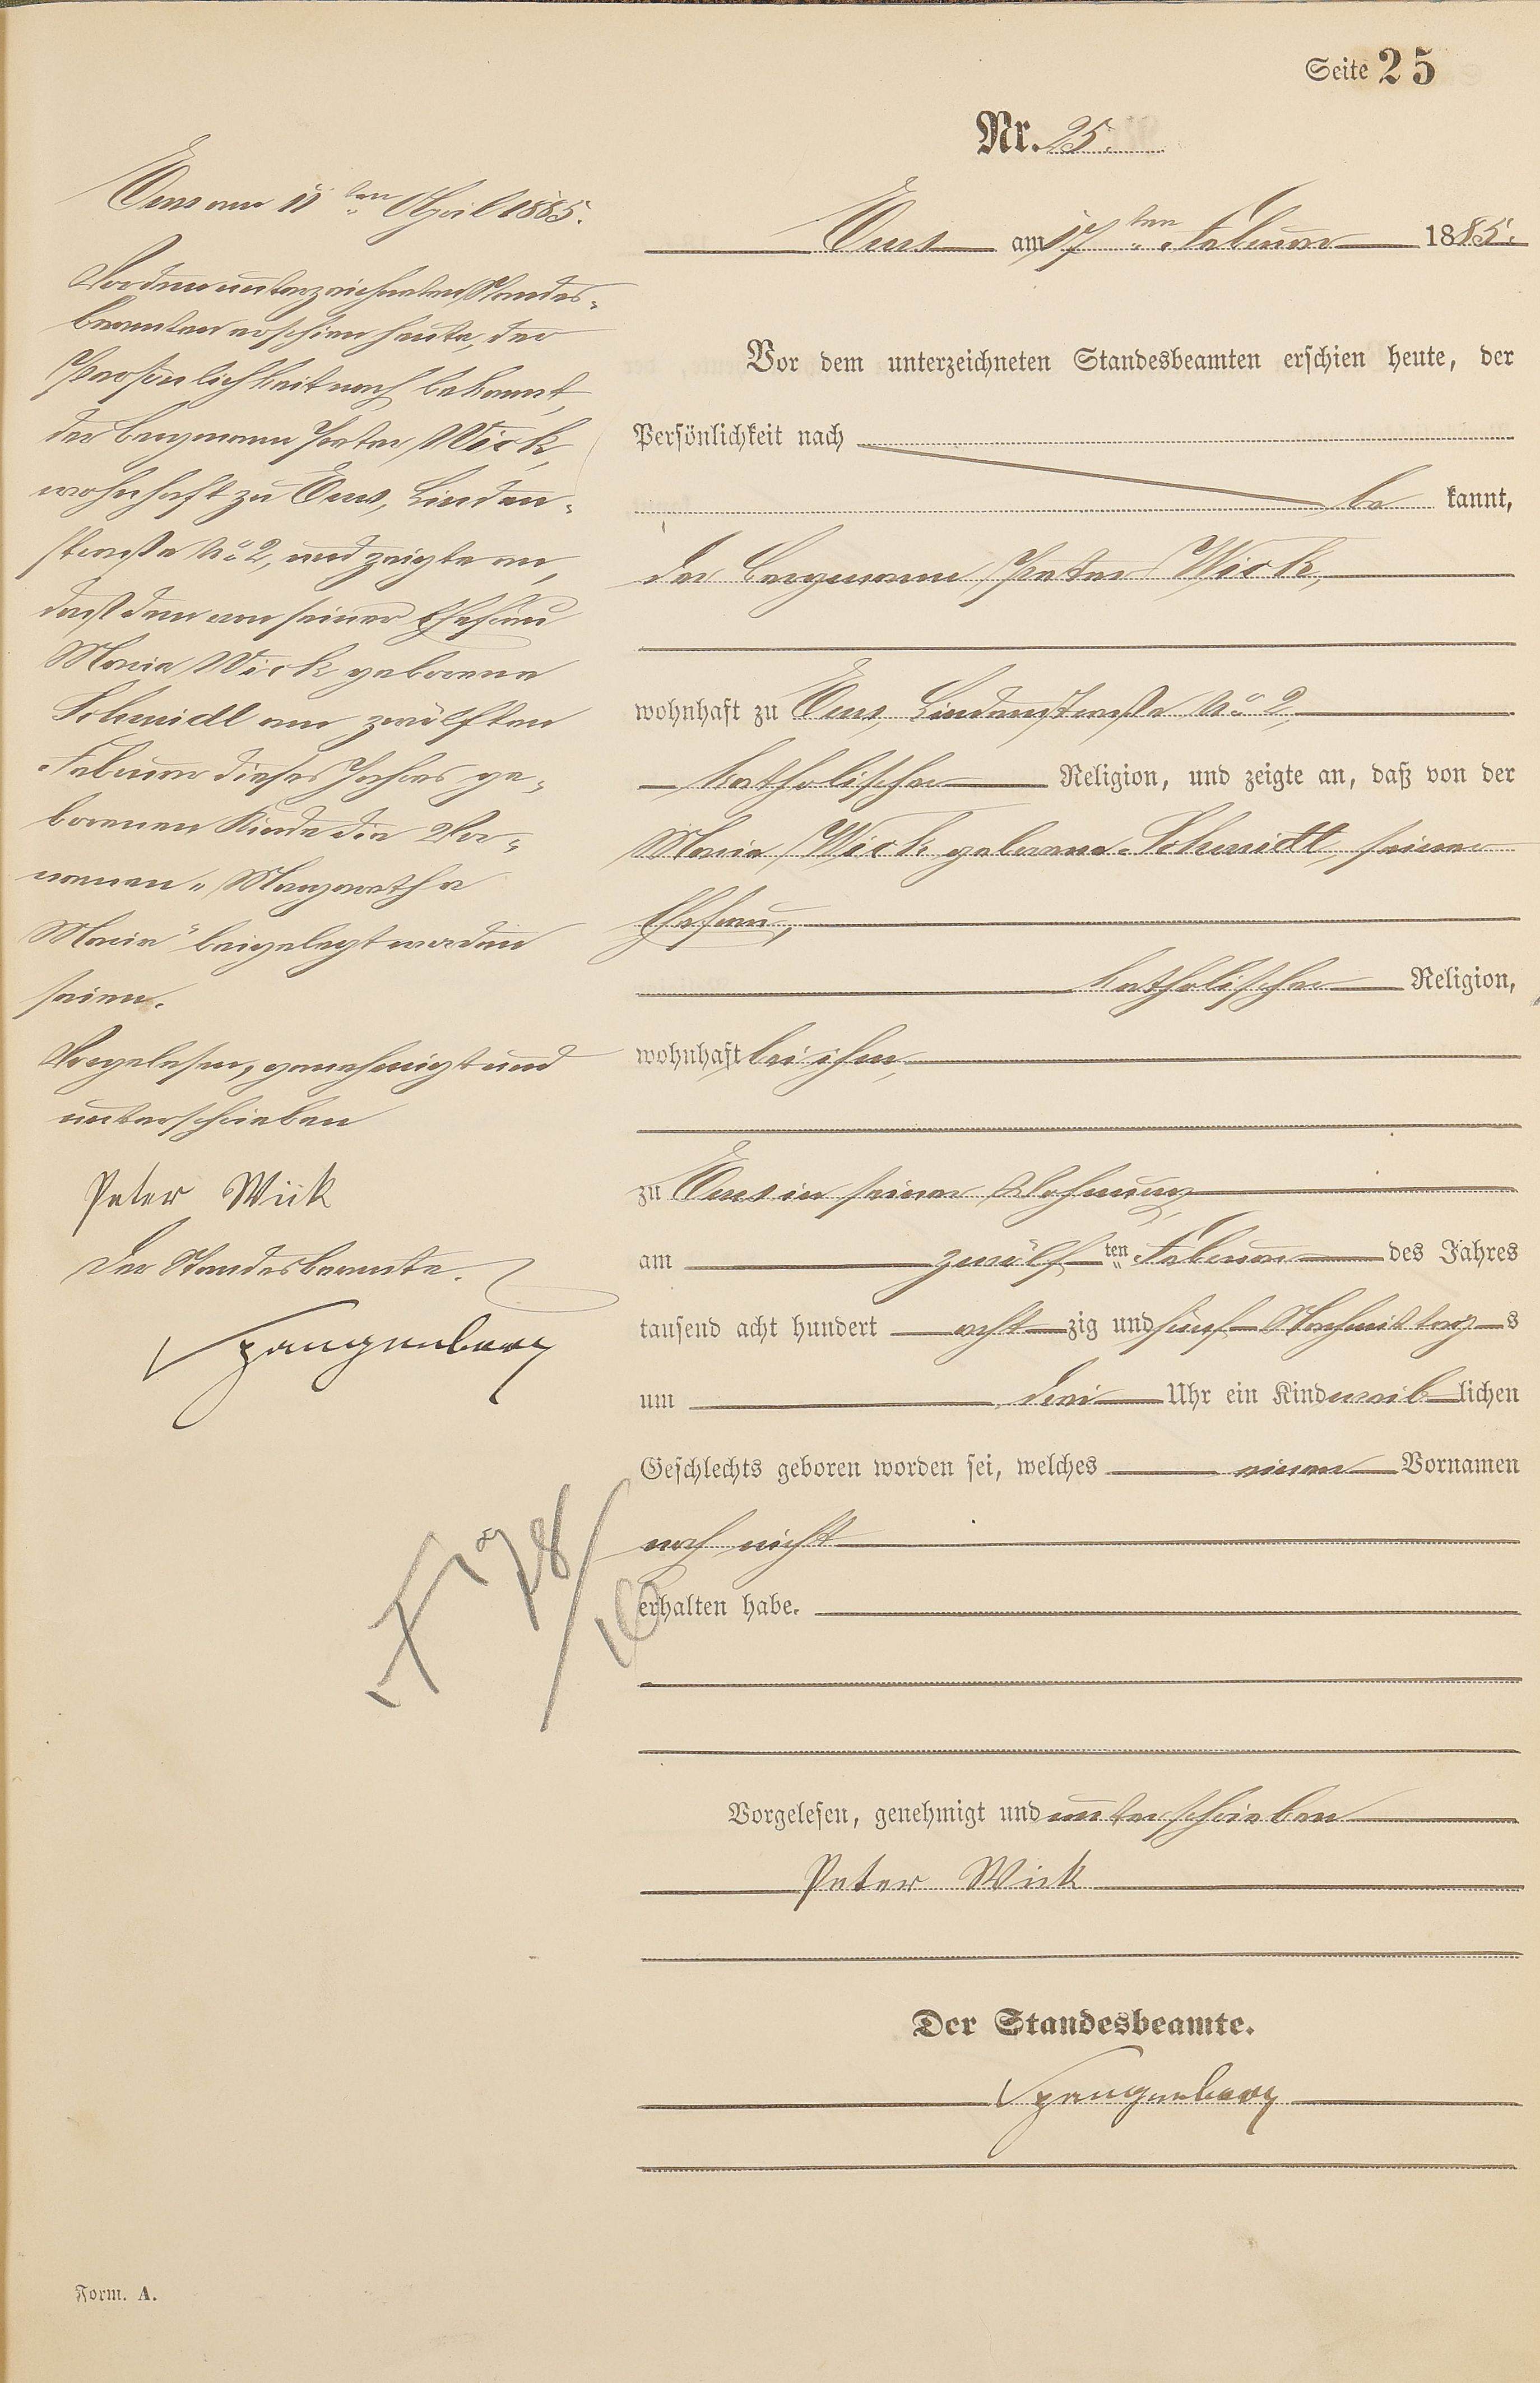 Seite 25
Nr. 25.
Ems am 17ten Februar 1885.
Vor dem unterzeichneten Standesbeamten erschien heute, der
Persönlichkeit nach
be kannt,
der Bergmann Peter Wick,
wohnhaft zu Ems, Lindenstraße No 2,
katholischer Religion, und zeigte an, daß von der
Maria Wick geborene Schmidt, seiner
Ehefrau,
katholischer Religion,
wohnhaft bei ihm,
zu Ems in seiner Wohnung
am zwölf ten Februar des Jahres
tausend acht hundert acht zig und fünf Nachmittag s
um drei Uhr ein Kind weib lichen
Geschlechts geboren worden sei, welches einen Vornamen
noch nicht
erhalten habe.
Vorgelesen, genehmigt und unterschrieben
Peter Wick
Der Standesbeamte.
Spangenberg
Ems am 11ten April 1885.
Vor dem unterzeichneten Standes-
beamten erschien heute, der
Persönlichkeit nach bekannt,
der Bergmann Peter Wick,
wohnhaft zu Ems, Linden-
straße No 2, und zeigte an,
daß dem von seiner Ehefrau
Maria Wick geborene
Schmidt am zwölften
Februar dieses Jahres ge-
borenen Kinde die Vor-
namen „Margaretha
Maria" beigelegt worden
seien.
Vorgelesen, genehmigt und
unterschrieben
Peter Wick
Der Standesbeamte.
Spangenberg
Form. A.